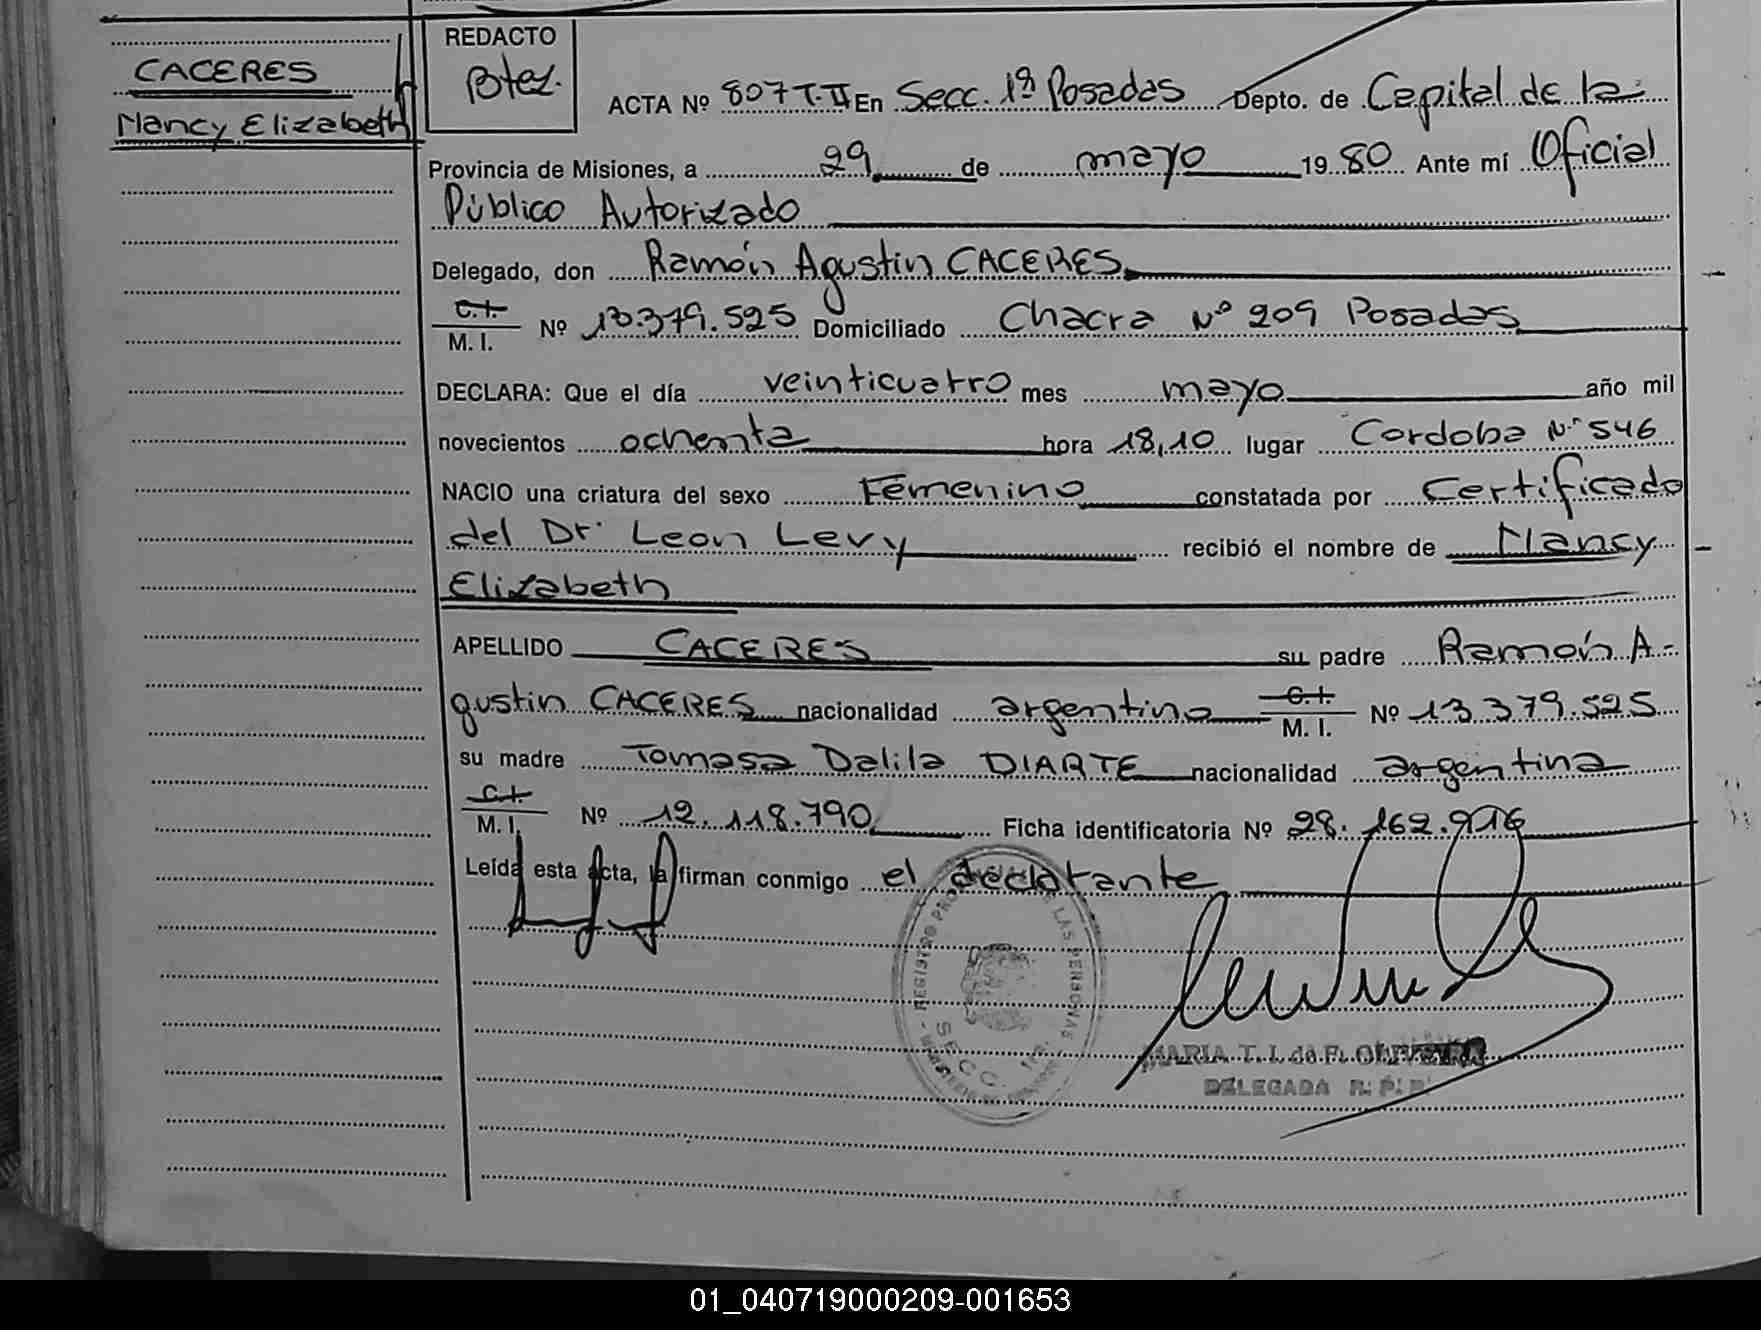 CACERES
Nancy Elizabeth
REDACTO
ACTA Nº 807 T.II En Secc. 1ª Posadas Depto. de Capital de la
Provincia de Misiones, a 29 de mayo 1980 Ante mí Oficial
Público Autorizado
Delegado, don Ramón Agustin CACERES
C.I. / M.I. Nº 13.379.525 Domiciliado Chacra Nº 209 Posadas
DECLARA: Que el día veinticuatro mes mayo año mil
novecientos ochenta hora 18,10 lugar Cordoba Nº 546
NACIO una criatura del sexo Femenino constatada por Certificado
del Dr. Leon Levy recibió el nombre de Nancy
Elizabeth
APELLIDO CACERES su padre Ramón A-
gustin CACERES nacionalidad argentino C.I. / M.I. Nº 13.379.525
su madre Tomasa Dalila DIARTE nacionalidad argentina
C.I. / M.I. Nº 12.118.790 Ficha identificatoria Nº 28.162.916
Leída esta acta, la firman conmigo el declarante
REGISTRO PRO LAS PERSONAS
SECC. 1ra.
MARIA T. I. de F. OLIVEIRA
DELEGADA R. P. P.
01_040719000209-001653